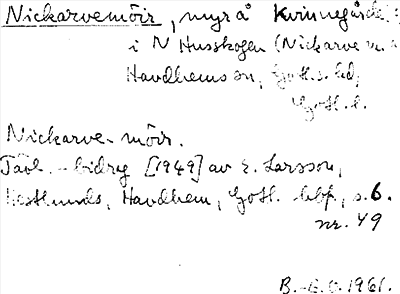 Nickarvemöir, myr å Kvinnegårde
i N Husskogen (Nickarve m.
Havdhems sn, Gotl. s. hd,
Gotl. l.
Nickarve-möir.
Tävl.-bidrag [1949] av E. Larsson,
Westlunds, Havdhem, Gotl. hbf, s. 6.
nr. 49
B. 1961.